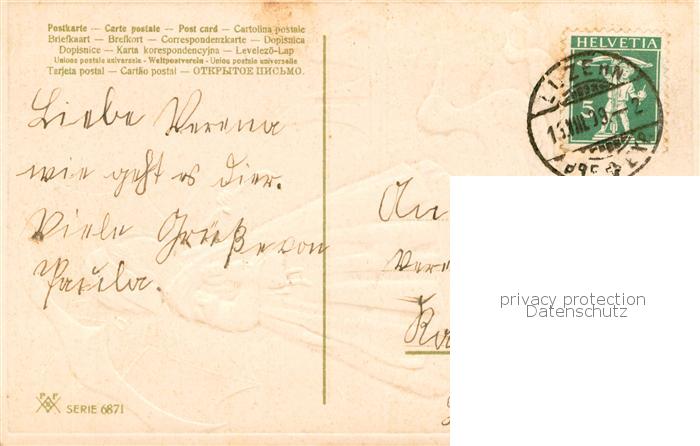 Postkarte — Carte postale — Post card — Cartolina postale
Briefkaart — Brefkort — Correspondenzkarte — Dopisnica
Dopisnice — Karta korespondencyjna — Levelező-Lap
Union postale universelle - Weltpostverein - Union postale universelle
Tarjeta postal — Cartão postal — ОТКРЫТОЕ ПИСЬМО.
HELVETIA
5
LUZERN
13.VIII.09.—2
Liebe Verena
wie geht es dier.
Viele Grüße von
Paula.
An
Vere
Ka
privacy protection
Datenschutz
SERIE 6871